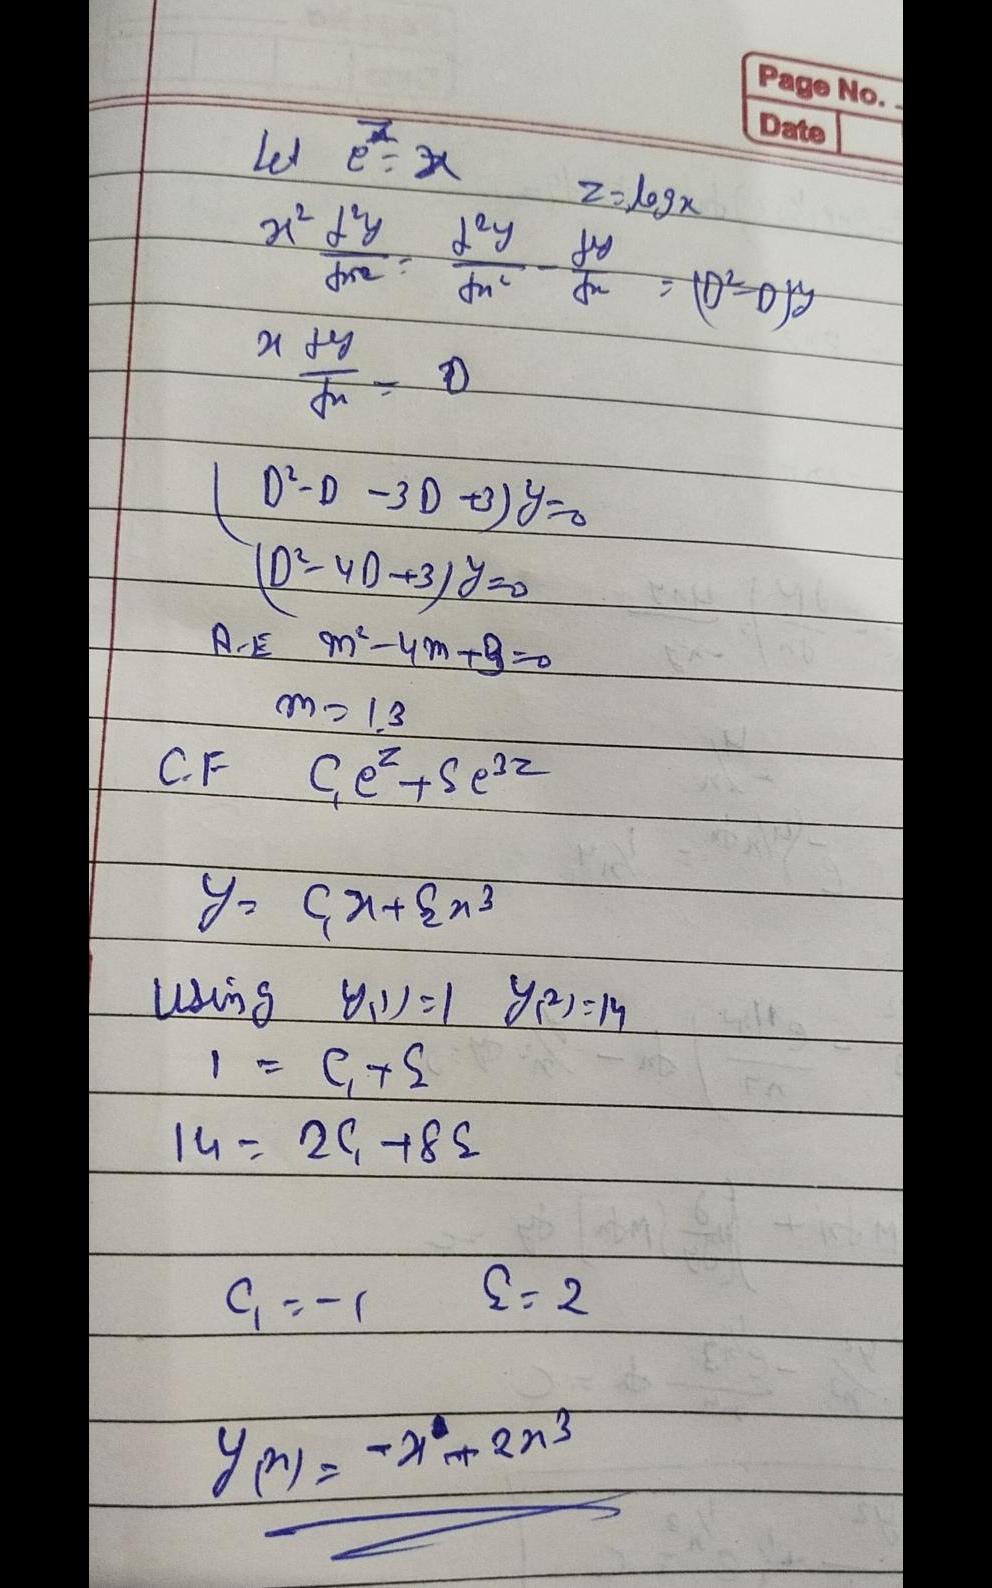 Page No.
Date
Let e^z = x
z = log x
x² d²y/dx² = d²y/dx² - dy/dx = (D²-D)y
x dy/dx = D
(D²-D -3D +3)y=0
(D²-4D+3)y=0
A.E m²-4m+3=0
m = 1,3
C.F C₁e^z + C₂e^3z
y = C₁x + C₂x³
Using y(1)=1 y(2)=14
1 = C₁+C₂
14 = 2C₁+8C₂
C₁ = -1 C₂ = 2
y(x) = -x + 2x³